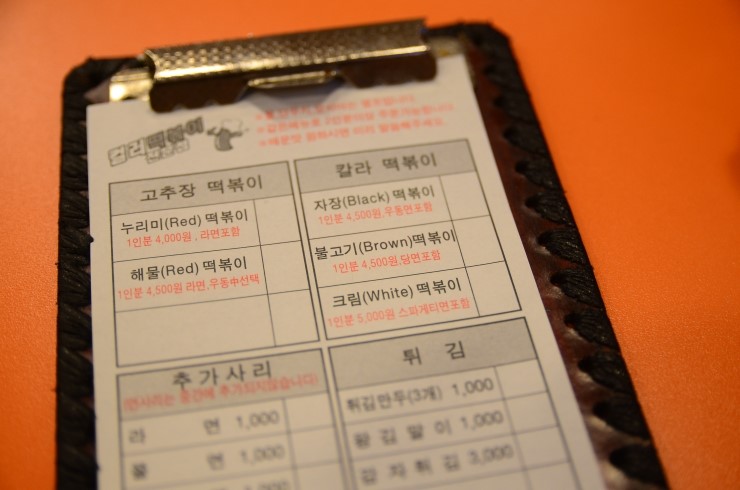 컬러떡볶이
고추장 떡볶이
누리미(Red) 떡볶이
1인분 4,000원, 라면포함
해물(Red) 떡볶이
1인분 4,500원 라면,우동中선택
칼라 떡볶이
자장(Black) 떡볶이
1인분 4,500원,우동면포함
불고기(Brown)떡볶이
1인분 4,500원,당면포함
크림(White) 떡볶이
1인분 5,000원 스파게티면포함
추가사리
(면사리는 중간에 추가되지않습니다)
라 면 1,000
쫄 면 1,000
튀 김
튀김만두(3개) 1,000
왕 김 말 이 1,000
감 자 튀 김 3,000